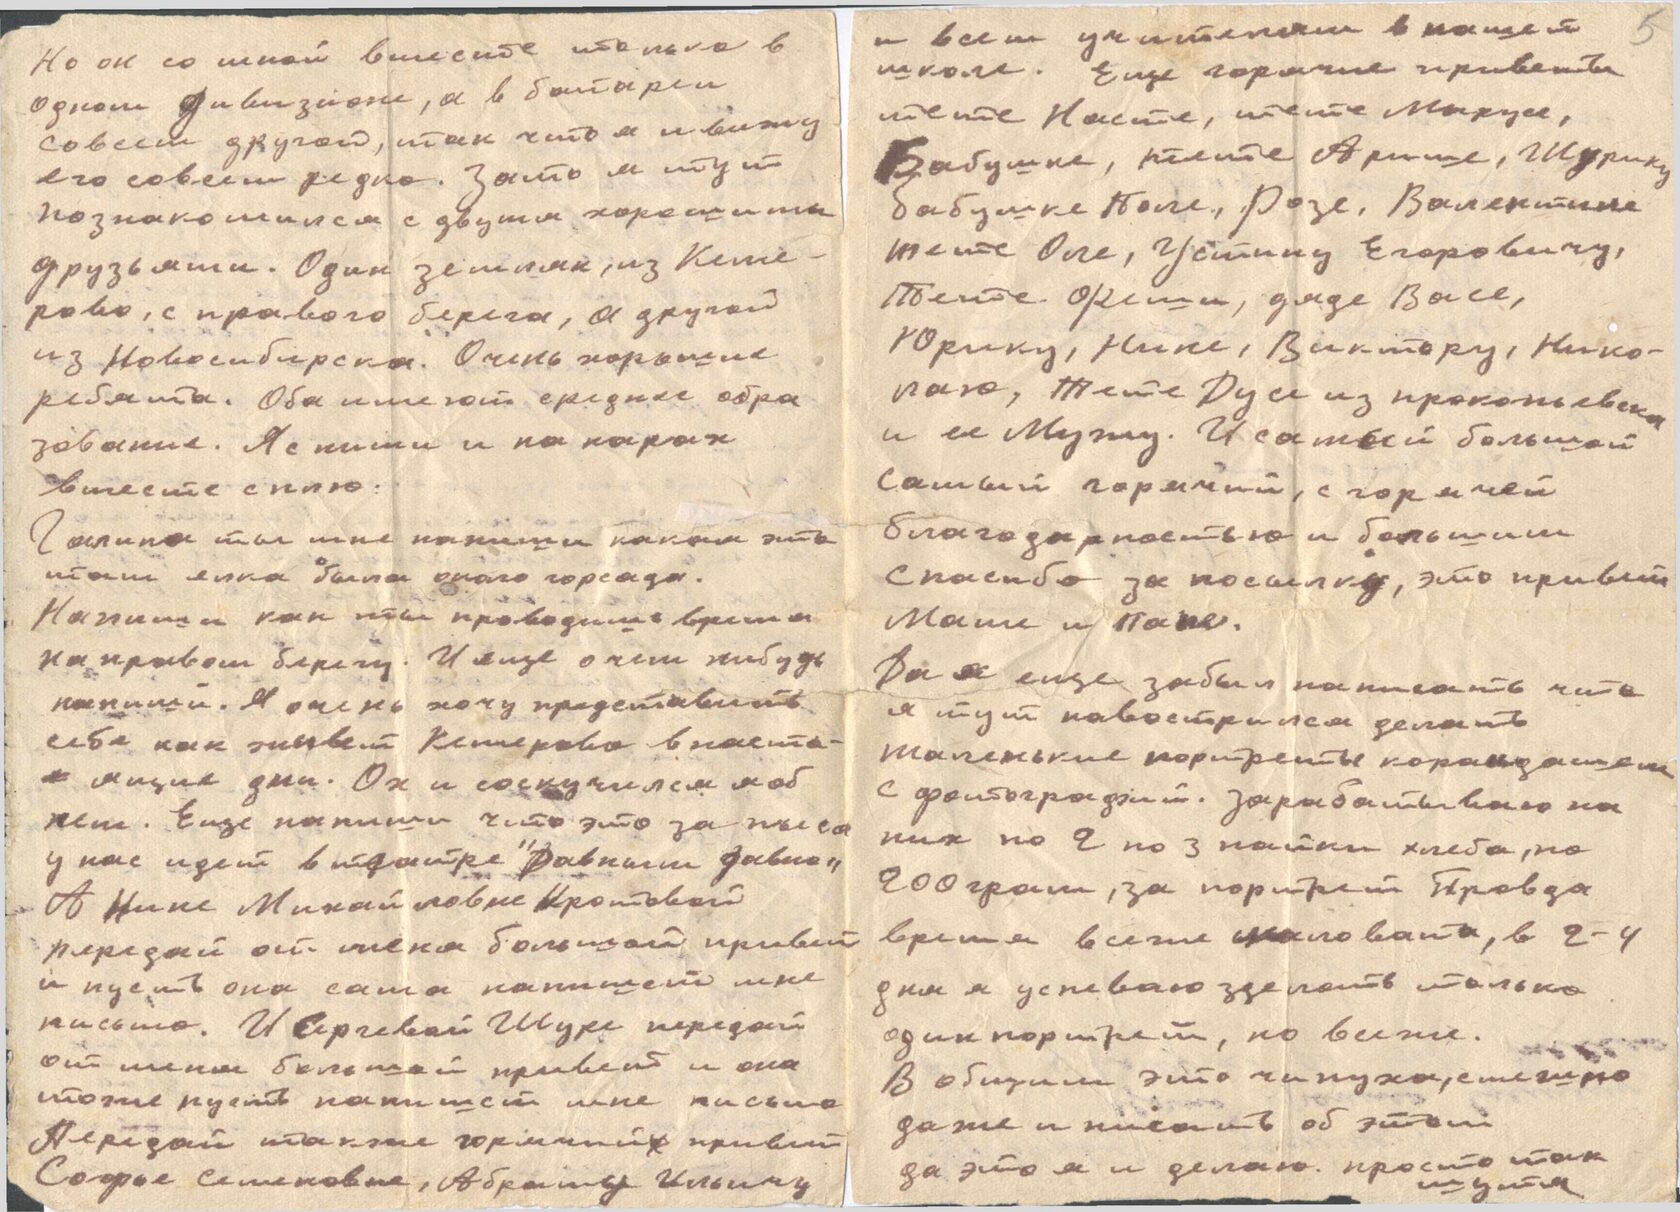 Но он со мной вместе только в
одном дивизионе, а в батареи
совсем другой, так что я и вижу
его совсем редко. Зато я тут
познакомился с двумя хорошими
друзьями. Один земляк, из Кеме-
рово, с правого берега, а другой
из Новосибирска. Очень хорошие
ребята. Оба имеют среднее обра
зование. Я с ними и на нарах
вместе сплю.
Галина ты мне напиши какая эта
там елка была около горсада.
Напиши как ты проводишь время
на правом берегу. И еще о чем нибудь
напиши. Я очень хочу представить
себе как живет Кемерово в насто-
ящие дни. Ох и соскучился я об
нем. Еще напиши что это за пьеса
у нас идет в театре "Давным давно"
А Нине Михайловне Кротовой
передай от меня большой привет
и пусть она сама напишет мне
письмо. И Сергевой Шуре передай
от меня большой привет и она
тоже пусть напишет мне письмо
Передай также горячий привет
Софье Семеновне, Абраму Ильичу
5
и всем учителям в нашей
школе. Еще горячие приветы
тете Насте, тете Марусе,
Бабушке, тете Арише, Шурику
бабушке Поле, Розе, Валентине
тете Оле, Устину Егоровичу,
Тете Фени, дяде Васе,
Юрику, Нине, Виктору, Нико-
лаю, тете Дусе из прокопьевска
и ее Мужу. И самый большой
самый горячий, с горячей
благодарностью и большим
спасибо за посылку, это привет
Маше и Пане.
Да я еще забыл написать что
я тут навострился делать
маленькие портреты карандашем
с фотографий. Зарабатываю на
них по 2 по 3 пайки хлеба, по
200 грам, за портрет Правда
время всеже маловато, в 2-4
дня я успеваю зделать только
один портрет, но всеже.
В общим это чипуха, смешно
даже и писать об этом
да это я и делаю. просто так
шутя